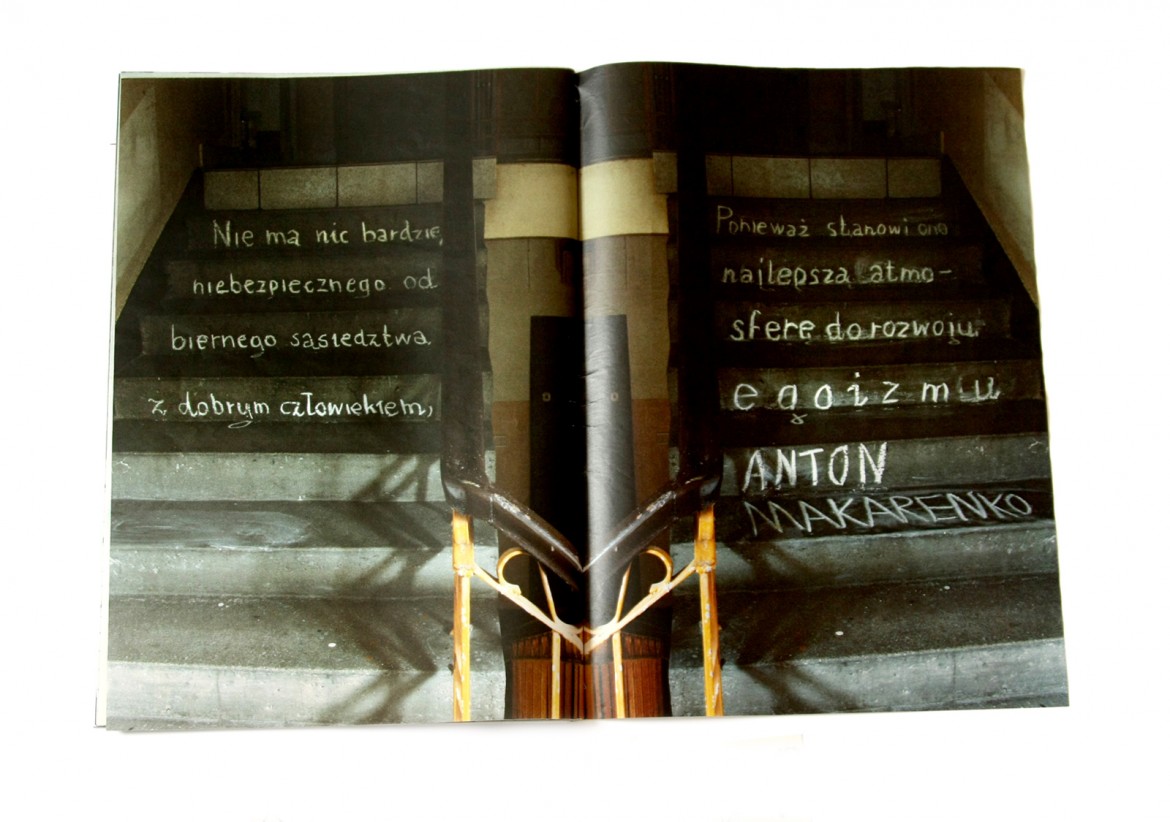 Nie ma nic bardziej
niebezpiecznego od
biernego sąsiedztwa
z dobrym człowiekiem,
Ponieważ stanowi ono
najlepszą atmo-
sferę do rozwoju
egoizmu
ANTON
MAKARENKO